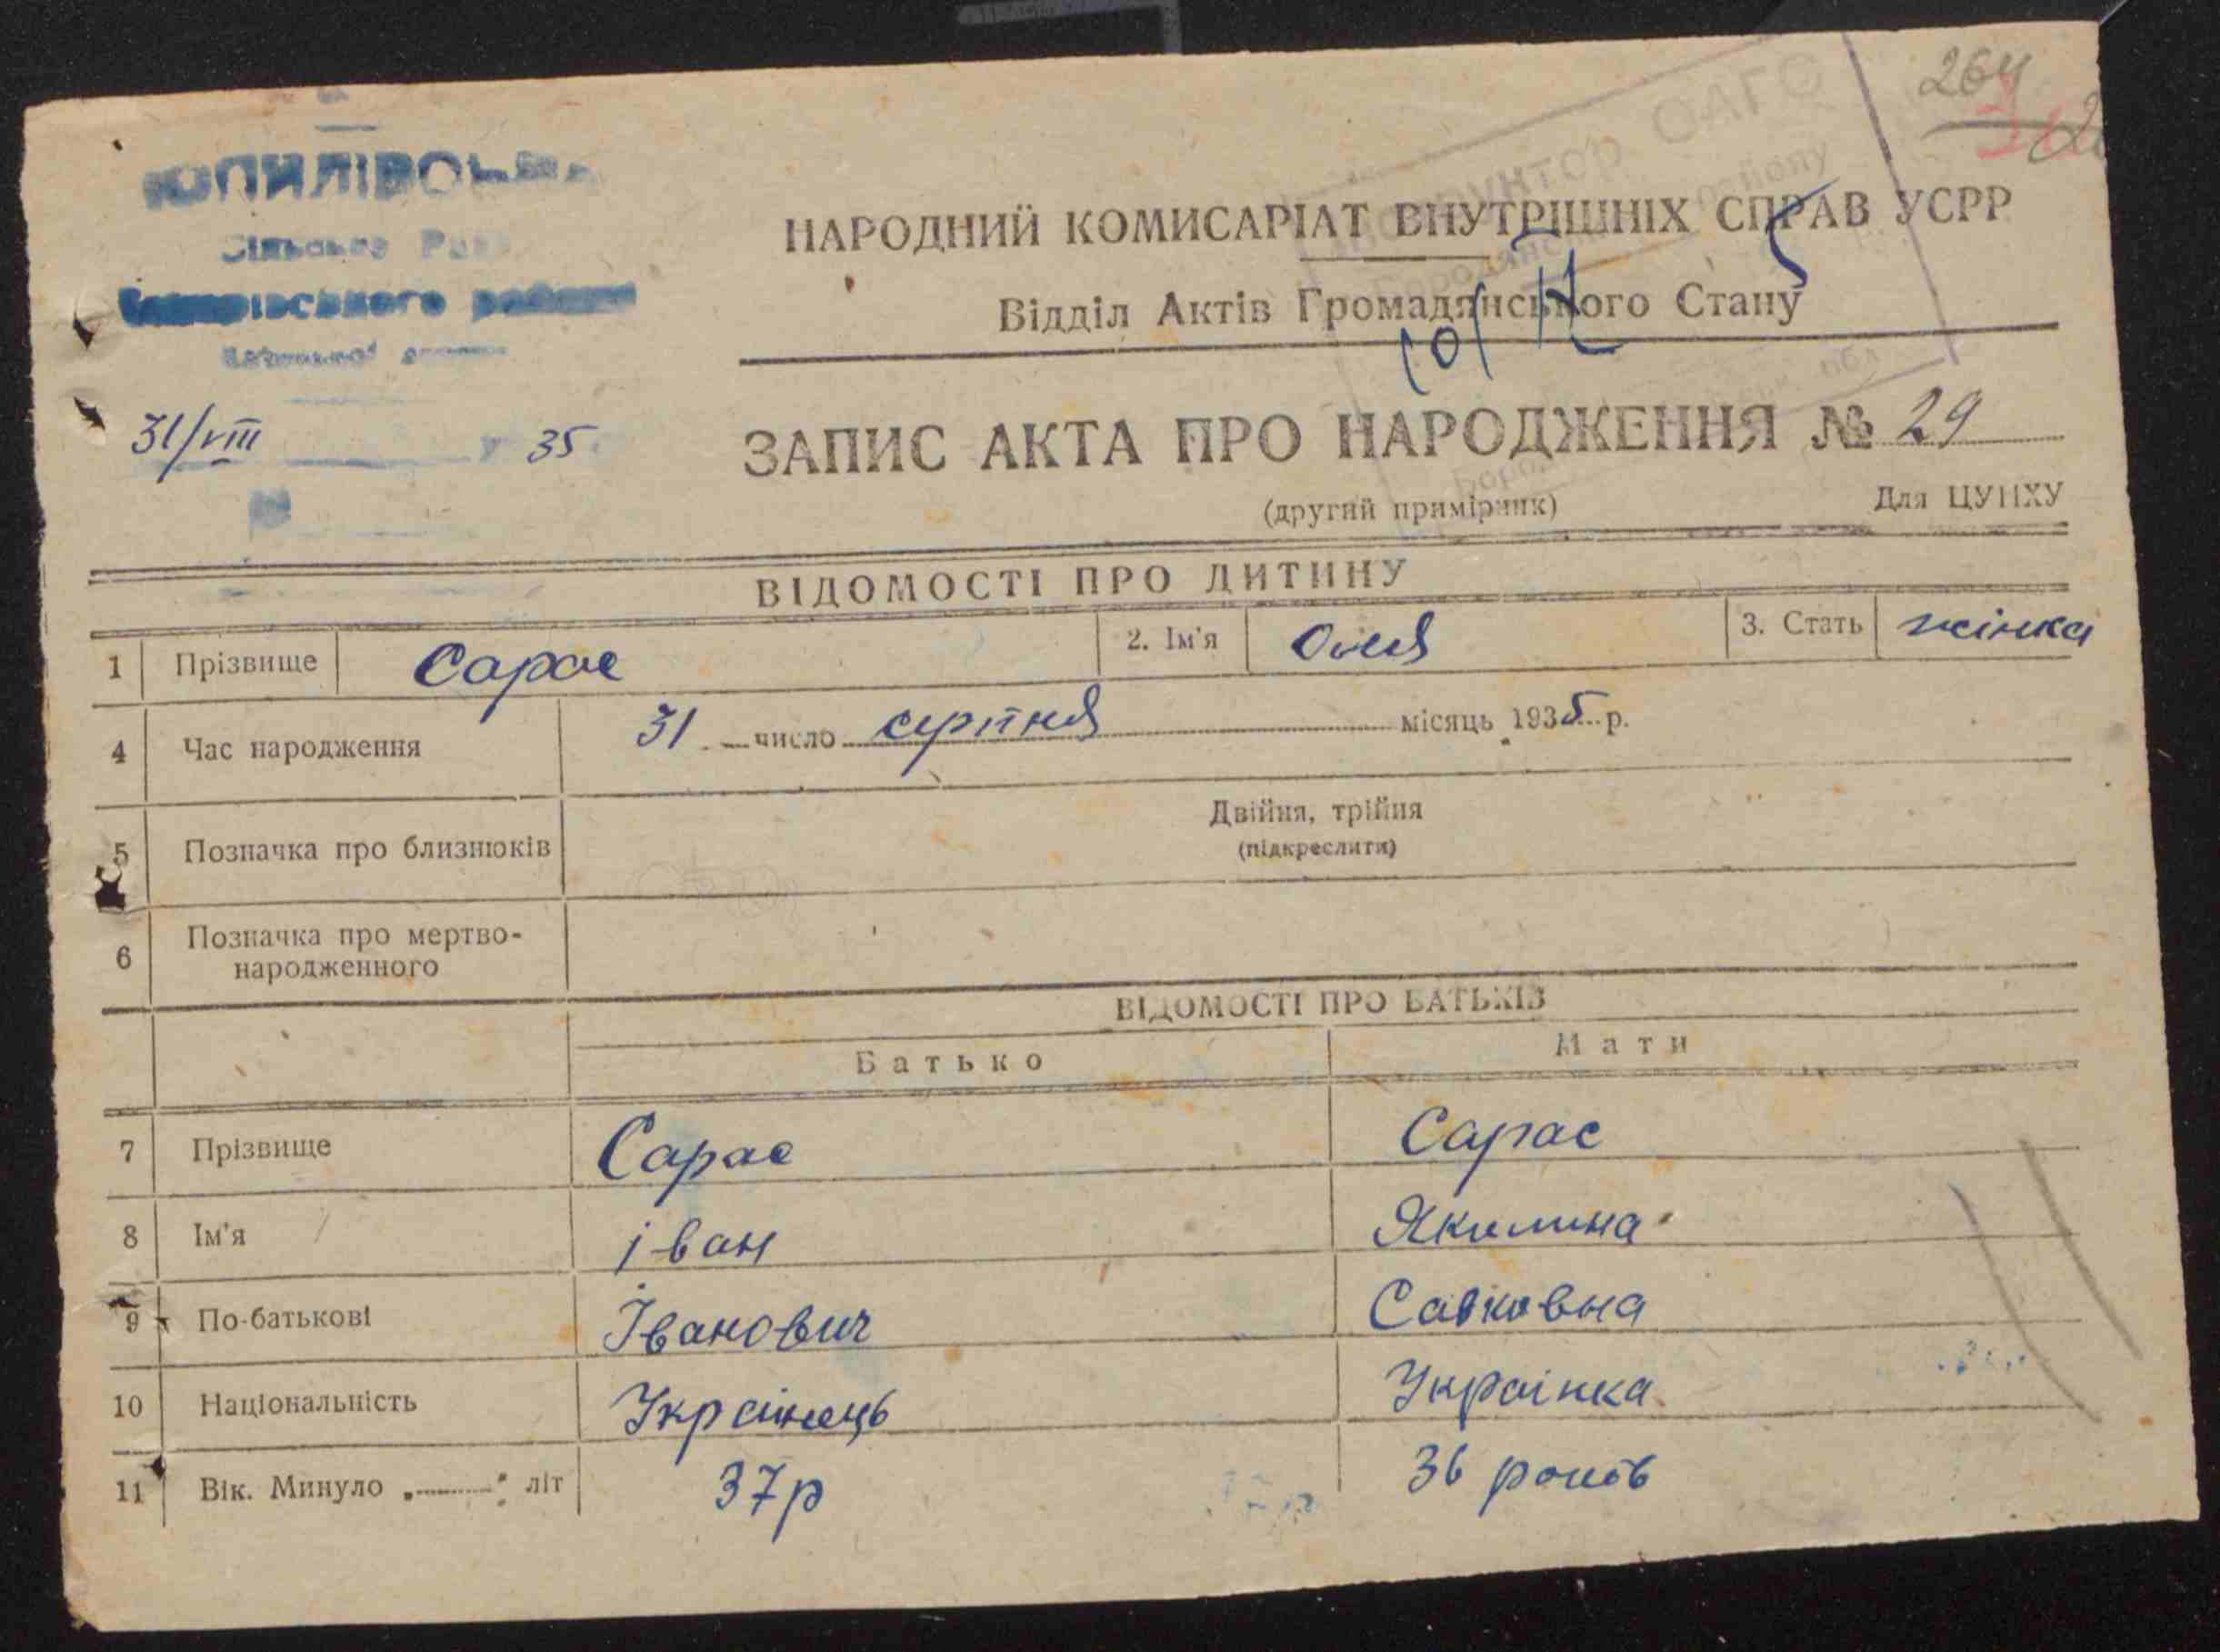 264
НАРОДНИЙ КОМИСАРІАТ ВНУТРІШНІХ СПРАВ УСРР
Відділ Актів Громадянського Стану
31/VIII 35
ЗАПИС АКТА ПРО НАРОДЖЕННЯ № 29
(другий примірник) Для ЦУНХУ
ВІДОМОСТІ ПРО ДИТИНУ
1 Прізвище Сарас 2. Ім'я Оля 3. Стать жінка
4 Час народження 31 число серпня місяць 1935 р.
5 Позначка про близнюків Двійня, трійня
(підкреслити)
6 Позначка про мертво-
народженного
ВІДОМОСТІ ПРО БАТЬКІВ
Батько Мати
7 Прізвище Сарас Сарас
8 Ім'я іван Якилина
9 По-батькові Іванович Савковна
10 Національність Українець Українка
11 Вік. Минуло літ 37р 36 років